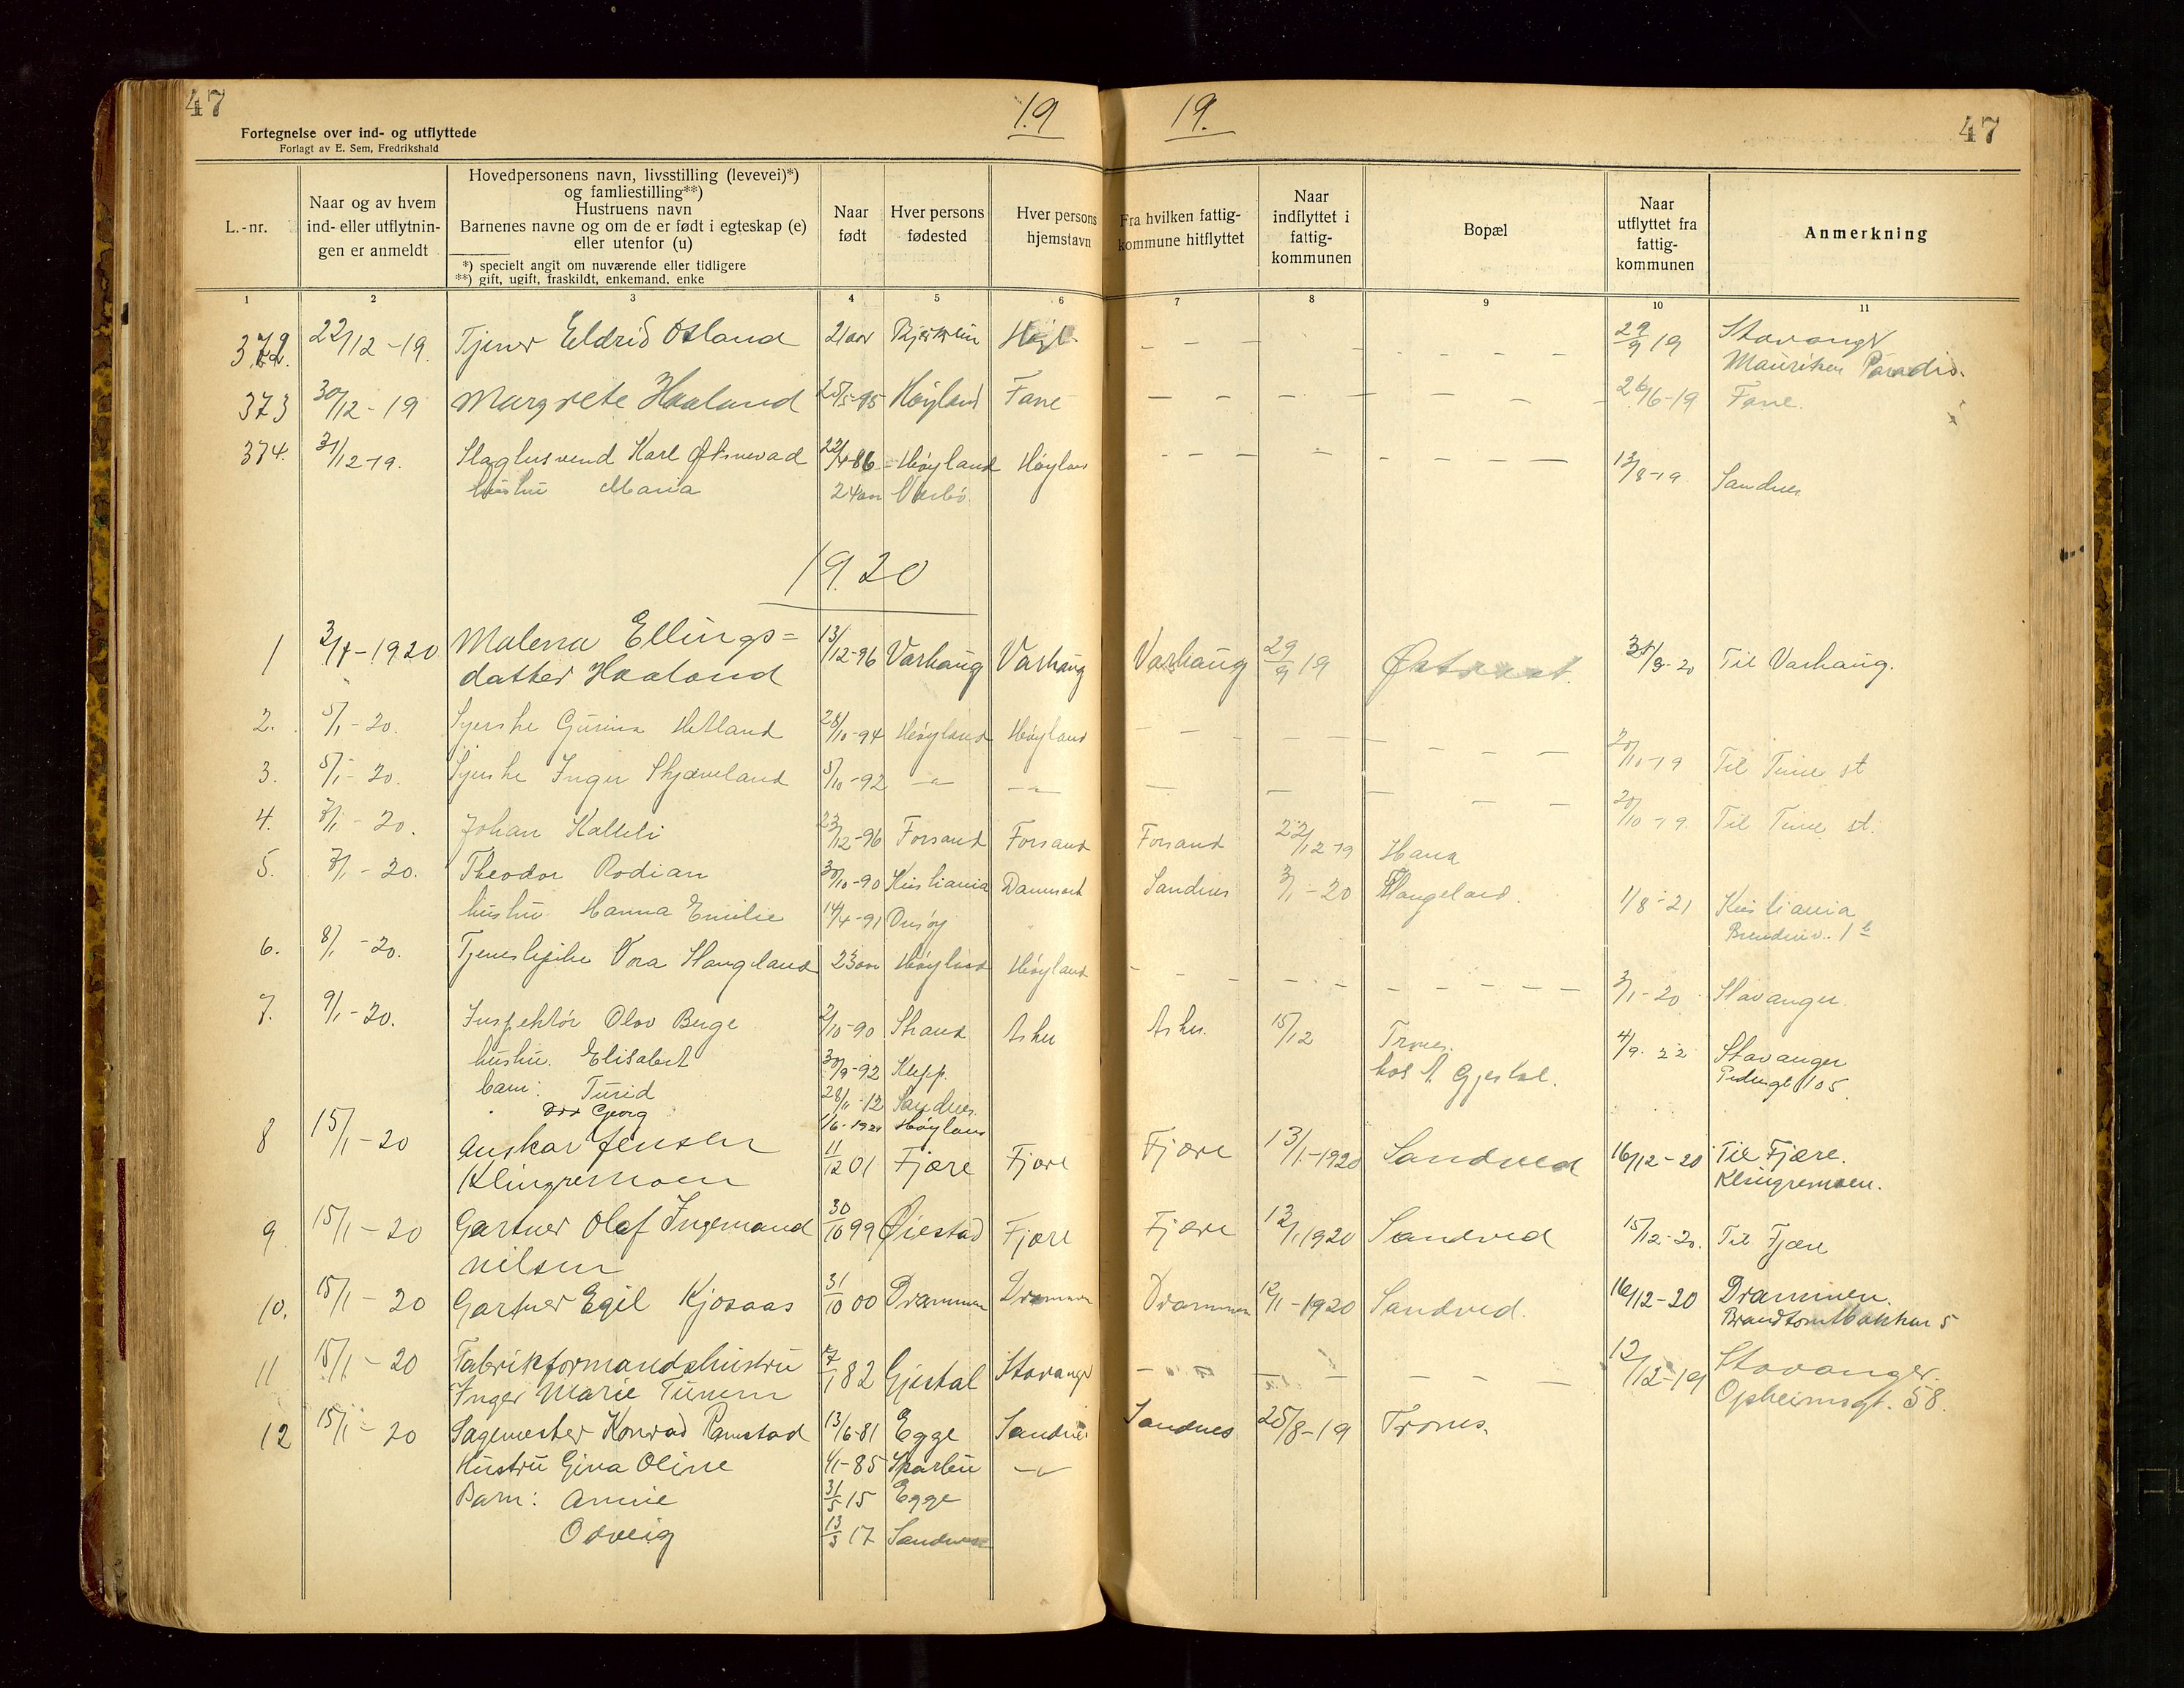 47
Fortegnelse over ind- og utflyttede
Forlagt av E. Sem, Fredrikshald
19
19.
47
L.-nr.
Naar og av hvem
ind- eller utflytnin-
gen er anmeldt
Hovedpersonens navn, livsstilling (levevei)*)
og famliestilling**)
Hustruens navn
Barnenes navne og om de er født i egteskap (e)
eller utenfor (u)
*) specielt angit om nuværende eller tidligere
**) gift, ugift, fraskildt, enkemand, enke
Naar
født
Hver persons
fødested
Hver persons
hjemstavn
Fra hvilken fattig-
kommune hitflyttet
Naar
indflyttet i
fattig-
kommunen
Bopæl
Naar
utflyttet fra
fattig-
kommunen
Anmerkning
1 2 3 4 5 6 7 8 9 10 11
372. 22/12-19. Tjener Eldrid Osland 21 aar Høyl. - - - - - - - 29/9 19 Stavanger
Paradis.
373 30/12-19 Margrete Haaland 25/5-95 Høyland Fane - - - - - - 26/6-19 Fane.
374. 31/12-19. Karl 22/4-86 Høyland Høyland - - - - - - - 13/8-19 Sandnes
hustru Maria 24 aar
1920
1 3/1-1920 Malena Ellings= 13/12-96 Varhaug Varhaug Varhaug 29/9 19 31/3-20 Til Varhaug.
datter Haaland
2. 5/1-20. Syerske Gurina Hetland 28/10-94 Høyland Høyland - - - - - - - - 20/10-19 Til Time st
3. 5/1-20. Syerske Inger Skjæveland 5/10-92 -"- -"- - - - - - 20/10-19 Til Time st.
4. 7/1-20. Johan Kalleli 23/12-96 Forsand Forsand Forsand 22/12-19 Hana
5. 7/1-20. Theodor Rodian 30/10-90 Kristiania Sandnes 3/1-20 1/8-21 Kristiania
hustru Hanna Emilie 14/4-91 Onsøy
6. 8/1-20. 23 aar Høyland Høyland - - - - - - - - - 3/1-20 Stavanger
7. 9/1-20. Inspektør Olav Berge 2/10-90 Strand Asker Asker. 15/12 Trones. 4/9-22 Stavanger
hustru. Elisabert 30/9-92 Klepp. hos A. Gjestal. Pedersgt 105
barn: Turid 28/11-12 Sandnes.
Georg 1/6-1921 Høyland
8 15/1-20 Anskar Jensen 11/12 01 Fjære Fjære Fjære 13/1-1920 Sandved 16/12-20 Til Fjære.
Klingremoen Klingremoen.
9 15/1-20 Gartner Olaf Ingemand 30/10 99 Øiestad Fjære Fjære 12/1 1920 Sandved 15/12-20. Til Fjære
Nilsen
10. 15/1-20 Gartner Egil Kjosaas 31/10 00 Drammen Drammen Drammen 12/1-1920 Sandved. 16/12-20 Drammen.
11 15/1-20 Fabrikformandshustru 7/1 82 Gjestal Stavanger - - - - - - - 12/12-19 Stavanger.
Inger Marie Tunem Opheimsgt. 58.
12 15/1-20 Sagemester Konrad Ramstad 13/6-81 Egge Sandnes Sandnes 25/8-19 Trones.
Hustru Gina Oline 4/1-85 Sparbu -"-
Barn: Annie 31/5 15 Egge
Odveig 13/3 17 Sandnes